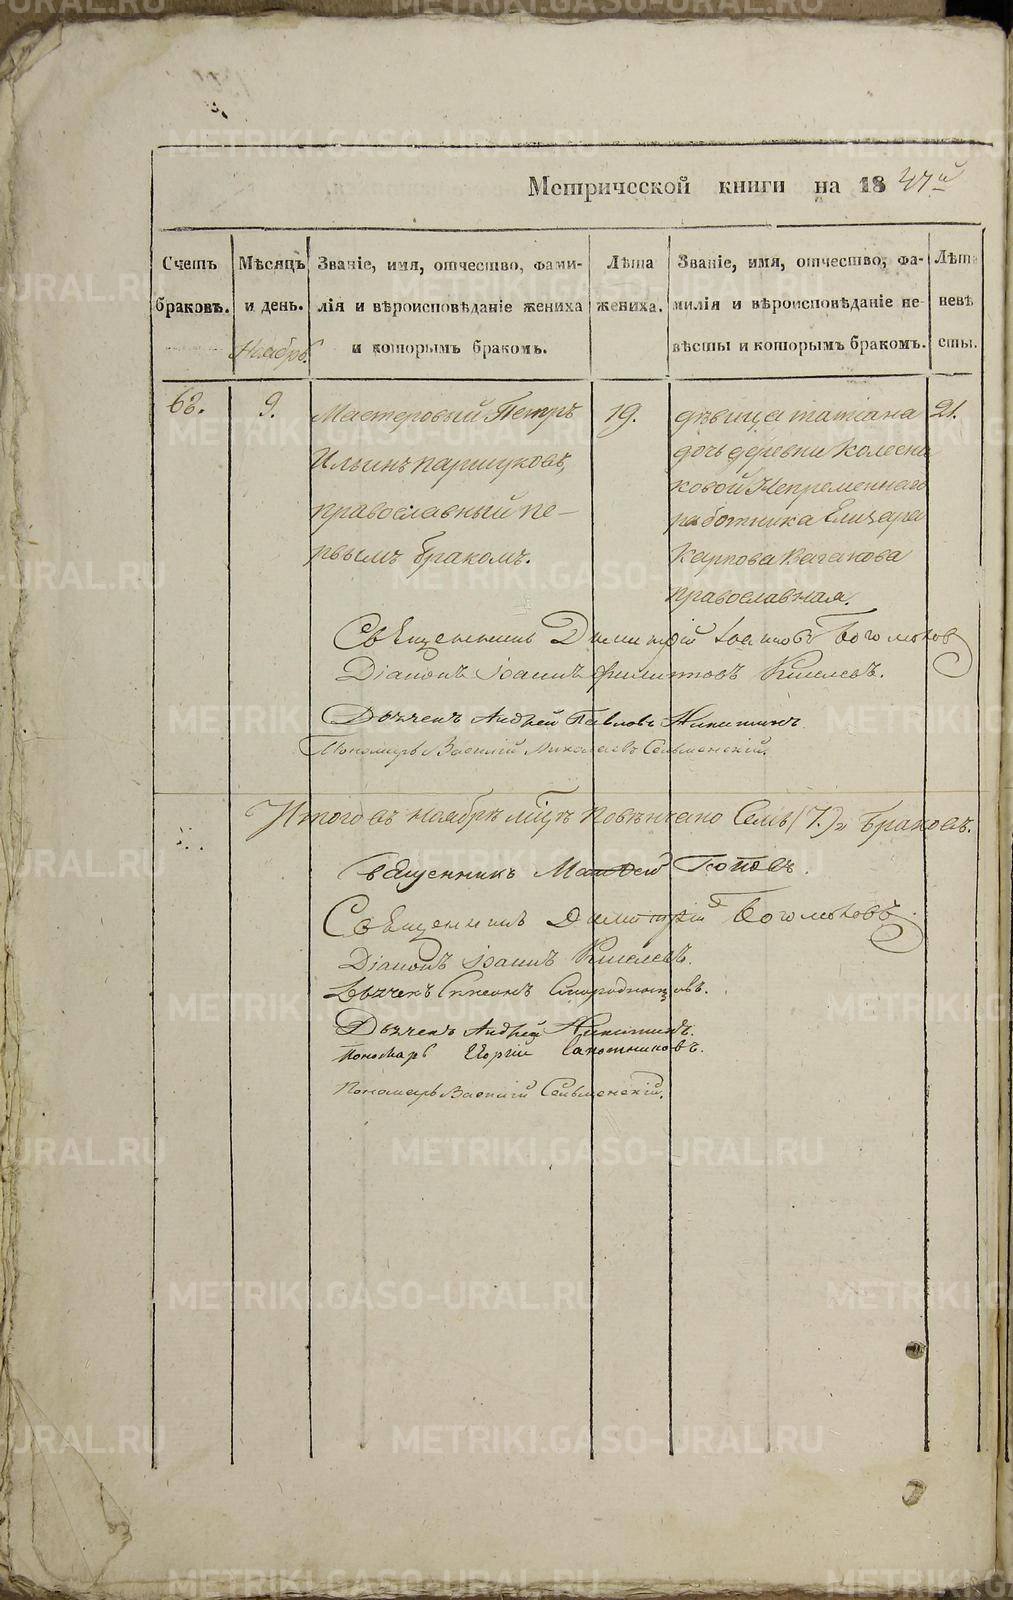 Метрической книги на 1847й
Счетъ браковъ.
Мѣсяцъ и день.
Ноябрь.
Званіе, имя, отчество, фами-
лія и вѣроисповѣданіе жениха
и которымъ бракомъ.
Лѣта
жениха.
Званіе, имя, отчество, фа-
милія и вѣроисповѣданіе не-
вѣсты и которымъ бракомъ.
Лѣта
невѣ
сты.
62.
9.
Мастеровый Петръ
Ильинъ Паршуковъ,
православный пе-
рвымъ бракомъ.
19.
дѣвица татіана
дочь деревни Колесни
ковой Непременнаго
работника Елизара
Карпова Ваганова
православная.
21.
Священникъ Димитрій Іоанновъ Богомоловъ
Діаконъ Іоаннъ Филиповъ Киселевъ.
Дьячекъ Андрей Павловъ Никитинъ.
Пономарь Василій Николаевъ Сельменскій.
Итого въ ноябрѣ мцѣ Повѣнчано Семь (7.) Браковъ.
Священникъ Матфей Поповъ.
Священникъ Димитрій Богомоловъ.
Діаконъ Іоаннъ Киселевъ.
Дьячекъ Симеонъ Смородинцовъ.
Дьячекъ Андрей Никитинъ.
Пономарь Георгій Сапожниковъ.
Пономарь Василій Сельменскій.
METRIKI.GASO-URAL.RU